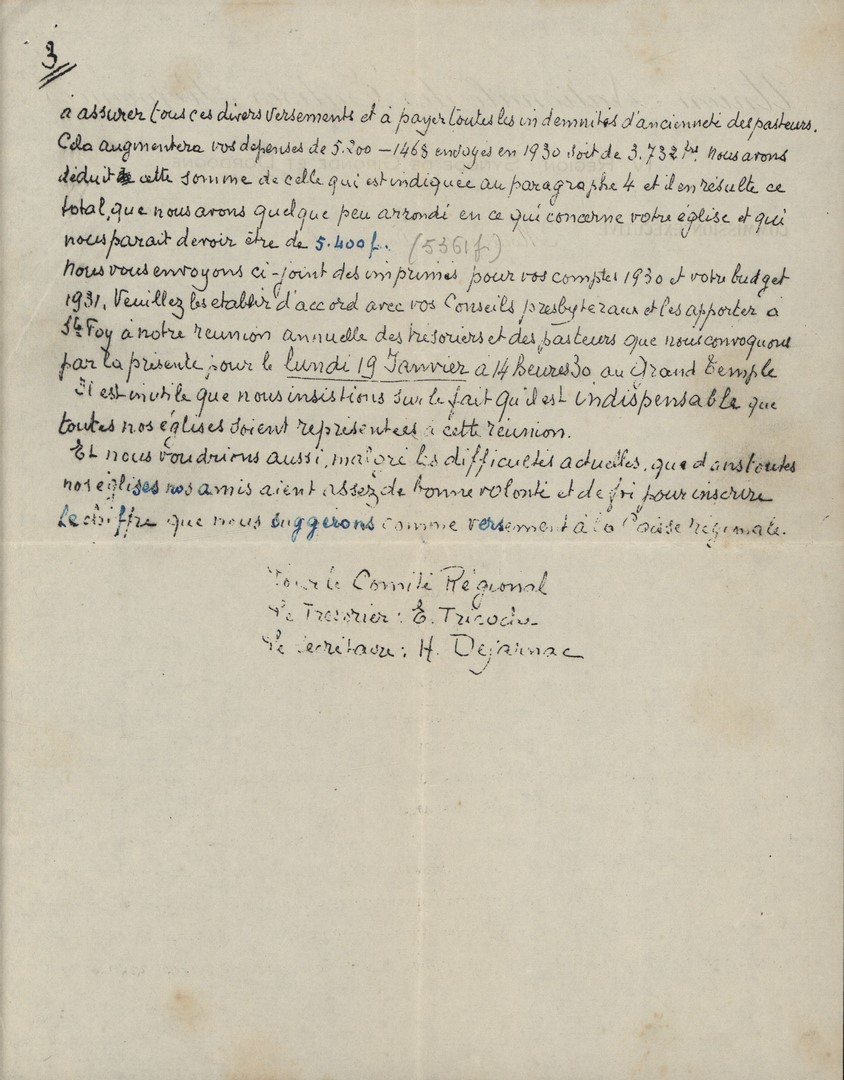 3
à assurer tous ces divers versements et à payer toutes les indemnités d'ancienneté des pasteurs.
Cela augmentera vos depenses de 5.200 – 1468 envoyés en 1930 soit de 3.732 frs. Nous avons
déduit cette somme de celle qui est indiquée au paragraphe 4 et il en résulte ce
total, que nous avons quelque peu arrondi en ce qui concerne votre église et qui
nous parait devoir être de 5.400 f. (5361 f.)
Nous vous envoyons ci-joint des imprimés pour vos comptes 1930 et votre budget
1931. Veuillez les etablir d'accord avec vos Conseils presbyteraux et les apporter à
Ste Foy à notre reunion annuelle des trésoriers et des pasteurs que nous convoquons
par la présente pour le lundi 19 Janvier à 14 heures 30 au Grand Temple
Il est inutile que nous insistions sur le fait qu'il est indispensable que
toutes nos églises soient représentées à cette réunion.
Et nous voudrions aussi, malgré les difficultés actuelles, que dans toutes
nos églises nos amis aient assez de bonne volonté et de foi pour inscrire
le chiffre que nous suggérons comme versement à la Caisse régionale.
Pour le Comité Régional
Le Trésorier : E. Tricoche
Le Secrétaire : H. Dejarnac